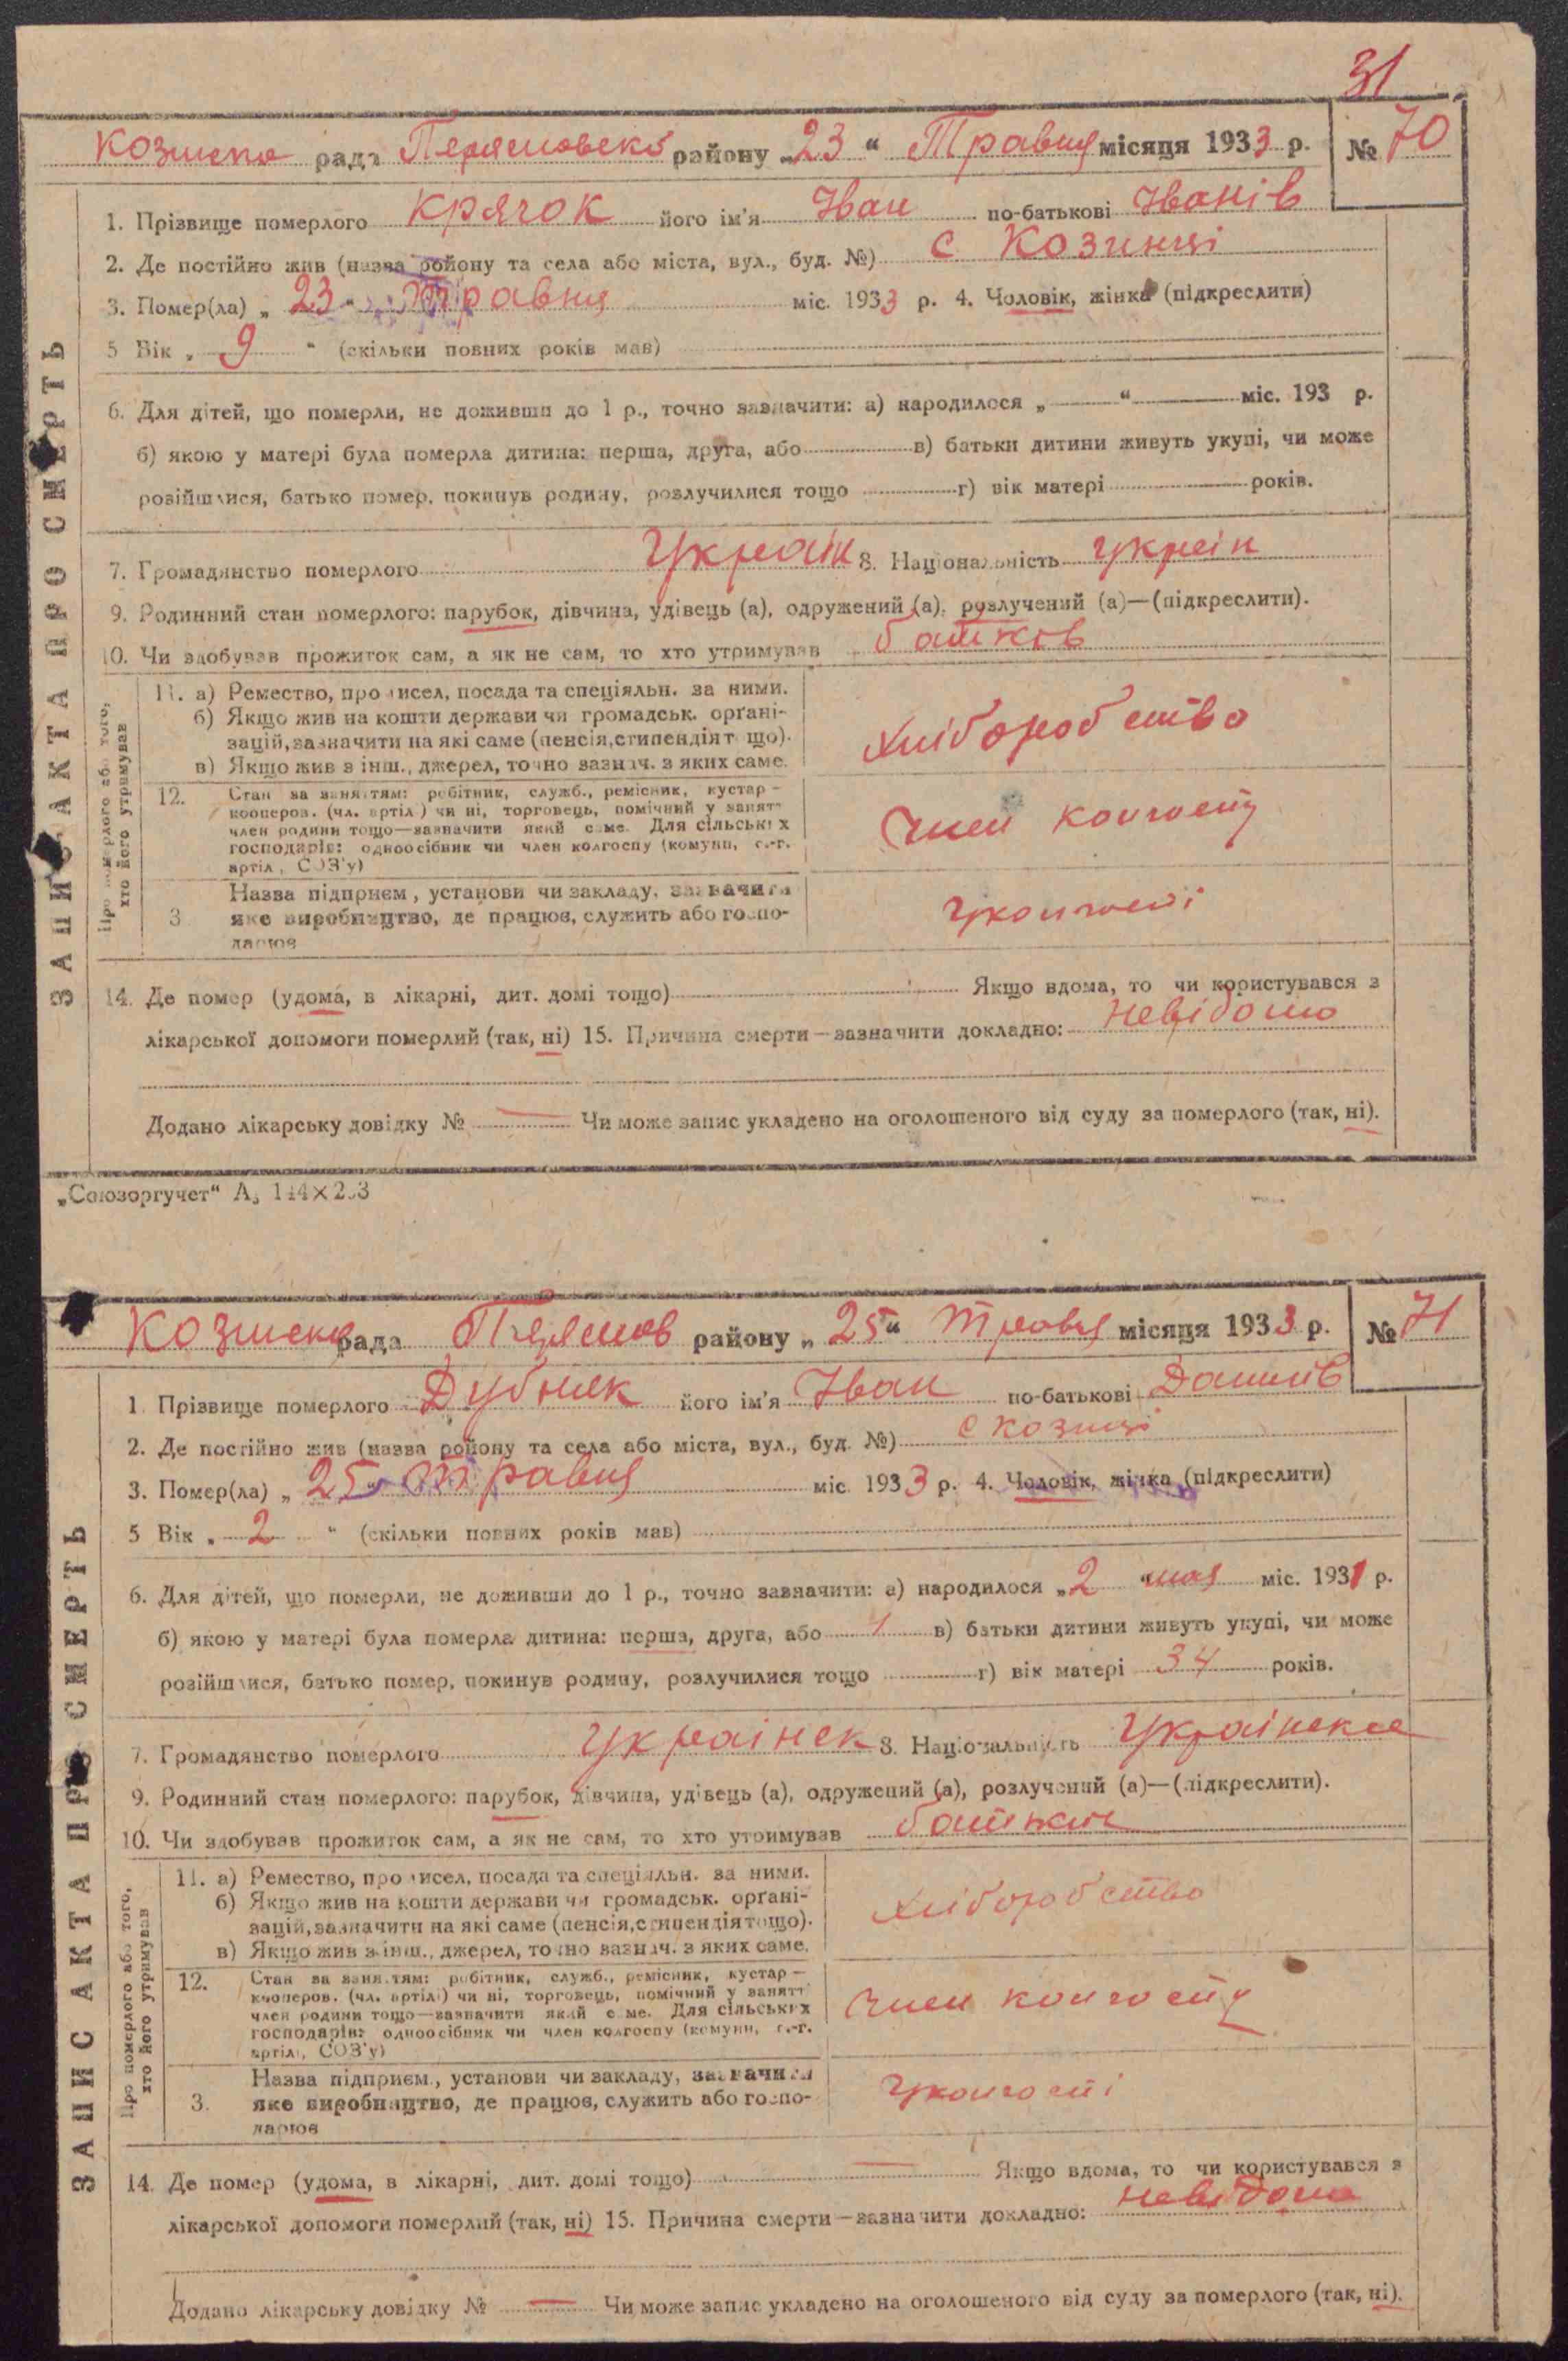 31
Козинска рада Переяславско району „23“ Травня місяця 1933 р. № 70
1. Прізвище померлого Крячок його ім'я Іван по-батькові Іванів
2. Де постійно жив (назва району та села або міста, вул., буд. №) с Козинці
3. Помер(ла) „23“ травня міс. 1933 р. 4. Чоловік, жінка (підкреслити)
5 Вік „9“ (скільки повних років мав)
6. Для дітей, що померли, не доживши до 1 р., точно зазначити: а) народилося „ “ міс. 193 р.
б) якою у матері була померла дитина: перша, друга, або в) батьки дитини живуть укупі, чи може
розійшлися, батько помер, покинув родину, розлучилися тощо г) вік матері років.
7. Громадянство померлого Україн 8. Національність Україн
9. Родинний стан померлого: парубок, дівчина, удівець (а), одружений (а), розлучений (а)—(підкреслити).
10. Чи здобував прожиток сам, а як не сам, то хто утримував батьків
ЗАПИС АКТА ПРО СМЕРТЬ
Про померлого або того,
хто його утримував
11. а) Ремество, промисел, посада та спеціяльн. за ними.
б) Якщо жив на кошти держави чи громадськ. органі-
зацій, зазначити на які саме (пенсія, стипендія тощо).
в) Якщо жив з інш., джерел, точно зазнач. з яких саме.
хліборобство
12. Стан за заняттям: робітник, служб., ремісник, кустар —
кооперов. (чл. артілі) чи ні, торговець, помічний у занятт
член родини тощо—зазначити який саме. Для сільських
господарів: одноосібник чи член колгоспу (комуни, с.-г.
артілі, СОЗ'у)
Член колгоспу
3 Назва підприєм., установи чи закладу, зазначити
яке виробництво, де працюв, служить або госпо-
дарюв
У колгоспі
14. Де помер (удома, в лікарні, дит. домі тощо) Якщо вдома, то чи користувався з
лікарської допомоги померлий (так, ні) 15. Причина смерти—зазначити докладно: невідомо
Додано лікарську довідку № — Чи може запис укладено на оголошеного від суду за померлого (так, ні).
„Союзоргучет“
Козинска рада Переяслов району „25“ травня місяця 1933 р. № 71
1 Прізвище померлого Дубняк його ім'я Іван по-батькові
2. Де постійно жив (назва району та села або міста, вул., буд. №) с Козинці
3. Помер(ла) „25“ травня міс 1933 р. 4. Чоловік, жінка (підкреслити)
5 Вік „2“ (скільки повних років мав)
6. Для дітей, що померли, не доживши до 1 р., точно зазначити: а) народилося „2“ мая міс. 1931 р.
б) якою у матері була померла дитина: перша, друга, або 1 в) батьки дитини живуть укупі, чи може
розійшлися, батько помер, покинув родину, розлучилися тощо г) вік матері 34 років.
7. Громадянство померлого Українск 8. Національність Українска
9. Родинний стан померлого: парубок, дівчина, удівець (а), одружений (а), розлучений (а)—(підкреслити).
10. Чи здобував прожиток сам, а як не сам, то хто утримував
ЗАПИС АКТА ПРО СМЕРТЬ
Про померлого або того,
хто його утримував
11. а) Ремество, промисел, посада та спеціяльн. за ними.
б) Якщо жив на кошти держави чи громадськ. органі-
зацій, зазначити на які саме (пенсія, стипендія тощо).
в) Якщо жив з інш., джерел, точно зазнач. з яких саме.
хліборобство
12. Стан за заняттям: робітник, служб., ремісник, кустар —
кооперов. (чл. артілі) чи ні, торговець, помічний у занятт
член родини тощо—зазначити який саме. Для сільських
господарів: одноосібник чи член колгоспу (комуни, с.-г.
артілі, СОЗ'у)
Член колгоспу
3. Назва підприєм., установи чи закладу, зазначити
яке виробництво, де працюв, служить або госпо-
дарюв
У колгоспі
14. Де помер (удома, в лікарні, дит. домі тощо) — Якщо вдома, то чи користувався з
лікарської допомоги померлий (так, ні) 15. Причина смерти—зазначити докладно: невідомо
Додано лікарську довідку № — Чи може запис укладено на оголошеного від суду за померлого (так, ні).